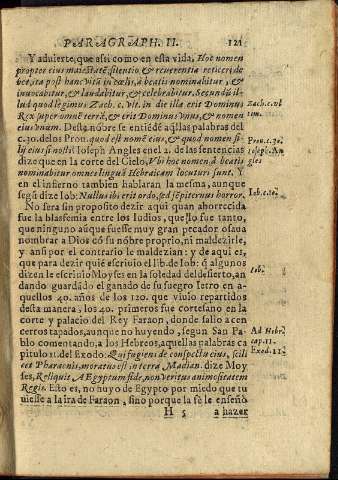 PARAGRAPH. II. 121
Y aduierte, que asi como en esta vida, Hoc nomen
propter eius maiestatẽ, silentio, & reuerentia reticeri, de
bet, ita post hanc vitã in cœlis, à beatis nominabitur, &
inuocabitur, & laudabitur, & celebrabitur. Secundũ il-
lud quod legimus Zach. c. vlt. in die illa erit Dominus
Rex super omnẽ terrã, & erit Dominus vnus, & nomen
eius vnum. Destẽ nõbre se entiẽdẽ aq̃llas palabras del
c. 30. delos Prou. quod est nomẽ eius, & quod nomen fi-
lij eius si nosti? Ioseph Angles en el 2. de las sentencias
dize que en la corte del Cielo, Vbi hoc nomen, à beatis
nominabitur omnes lingua Hebraicam locuturi sunt. Y
en el infierno tambien hablaran la mesma, aunque
segũ dize Iob: Nullus ibi erit ordo, sed sẽpiternus horror.
No sera sin proposito dezir aqui quan ahorrecida
fue la blasfemia entre los Iudios, que lo fue tanto,
que ninguno aũque fuesse muy gran pecador osaua
nombrar a Dios cõ su nõbre proprio, ni maldezirle,
y ansi por el contrario le maldezian: y de aqui es,
que para dezir quiẽ escriuio el lib. de Iob: q̃ algunos
dizen le escriuio Moyses en la soledad del desierto, an
dando guardãdo el ganado de su suegro Ietro en a-
quellos 40. años de los 120. que viuio repartidos
desta manera, los 40. primeros fue cortesano en la
corte y palacio del Rey Faraon, donde salio a en
cerros tapados, aunque no huyendo, segun San Pa-
blo comentando, a los Hebreos, aquellas palabras ca
pitulo 11. del Exodo: Qui fugiens de conspectu eius, scili
cet Pharaonis, moratus est in terra Madian. dize Moy
ses, Reliquit AEgyptum fide, non veritus animositatem
Regis. Esto es, no huyo de Egypto por miedo que tu
uiesse a la ira de Faraon, sino porque la fe le enseñò
H 5 a hazer
Zach. c. vl
tim.
Prou. c. 30.
Ioseph. An
gles
Iob. c. 10.
Iob.
Ad Hebr.
cap. 11.
Exod. 11.